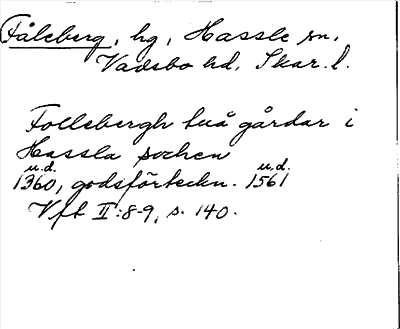 Fåleberg, hg, Hassle sn,
Vadsbo hd, Skar. l.
Follsbergh två gårdar i
Hassla sochen
u.d. u.d.
1360, godsförteckn. 1561
Vft II:8-9, s. 140.